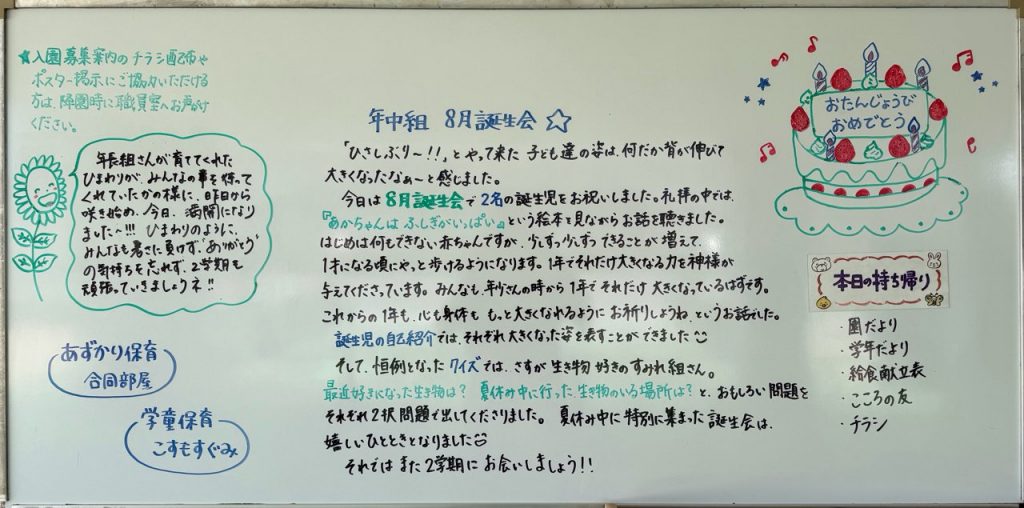 ★入園募集案内のチラシ配布や
ポスター掲示にご協力いただける
方は、降園時に職員室へお声がけ
ください。
年長組さんが育ててくれた
ひまわりが、みんなの事を待って
くれていたかの様に、昨日から
咲き始め、今日、満開になり
ました〜!!! ひまわりのように、
みんなも暑さに負けず、"ありがとう"
の気持ちを忘れず、2学期も
頑張っていきましょうネ!!
あずかり保育
合同部屋
学童保育
こすもすぐみ
年中組 8月誕生会☆
「ひさしぶり〜!!」とやって来た子ども達の姿は、何だか背が伸びて
大きくなったなぁ〜と感じました。
今日は8月誕生会で2名の誕生児をお祝いしました。礼拝の中では、
『あかちゃんはふしぎがいっぱい』という絵本を見ながらお話を聴きました。
はじめは何もできない赤ちゃんですが、少しずつ少しずつできることが増えて、
1才になる頃にやっと歩けるようになります。1年でそれだけ大きくなる力を神様が
与えてくださっています。みんなも、年少さんの時から1年でそれだけ大きくなっているはずです。
これからの1年も、心も身体ももっと大きくなれるようにお祈りしようね、というお話でした。
誕生児の自己紹介では、それぞれ大きくなった姿を表すことができました
そして、恒例となったクイズでは、さすが生き物好きのすみれ組さん。
最近好きになった生き物は? 夏休み中に行った生き物のいる場所は?と、おもしろい問題を
それぞれ2択問題で出してくださりました。 夏休み中に特別に集まった誕生会は、
嬉しいひとときとなりました
それではまた2学期にお会いしましょう!!
おたんじょうび
おめでとう
本日の持ち帰り
・園だより
・学年だより
・給食献立表
・こころの友
・チラシ